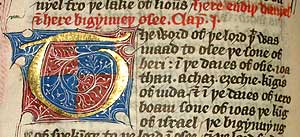 nyel fro þe lake of liouns here endiþ danyel
⁊ here bigynneþ osee. Cap. I
The word of þe lord þt was
maad to osee þe sone of
beri: i þe daies of osie ioa
than. achaz. ezechie. kigis
of iuda. ⁊ i þe daies of iero
boam sone of ioas þe kig
of israel þe bigynnyng
of to þe lord i osee